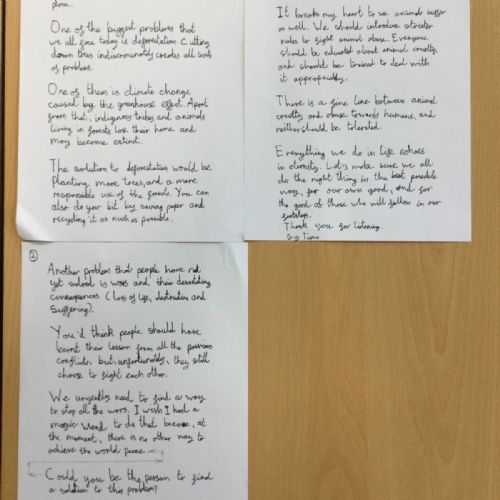 place.
One of the biggest problems that
we all face today is deforestation. Cutting
down trees indiscriminately creates all sorts
of problems.
One of them is climate change
caused by the greenhouse effect. Apart
from that, indigenous tribes and animals
living in forests lose their home and
may become extinct.
The solution to deforestation would be
Planting more trees, and a more
responsible use of the forests. You can
also do your bit by saving paper and
recycling it as much as possible.
2
Another problem that people have not
yet solved is wars and their devastating
consequences (Loss of life, destruction and
suffering).
You'd think people should have
learnt their lesson from all the previous
conflicts, but, unfortunately, they still
choose to fight each other.
We urgently need to find a way
to stop all the wars. I wish I had a
magic wand to do that because, at
the moment, there is no other way to
achieve the world peace
Could you be the person to find
a solution to this problem?
It breaks my heart to see animals suffer
as well. We should introduce stricter
rules to fight animal abuse. Everyone
should be educated about animal cruelty,
and should be trained to deal with
it appropriately.
There is a fine line between animal
cruelty and abuse towards humans, and
neither should be tolerated.
Everything we do in life echoes
in eternity. Let's make sure we all
do the right thing in the best possible
way, for our own good, and for
the good of those who will follow in our
footsteps.
Thank you for listening.
By Timo